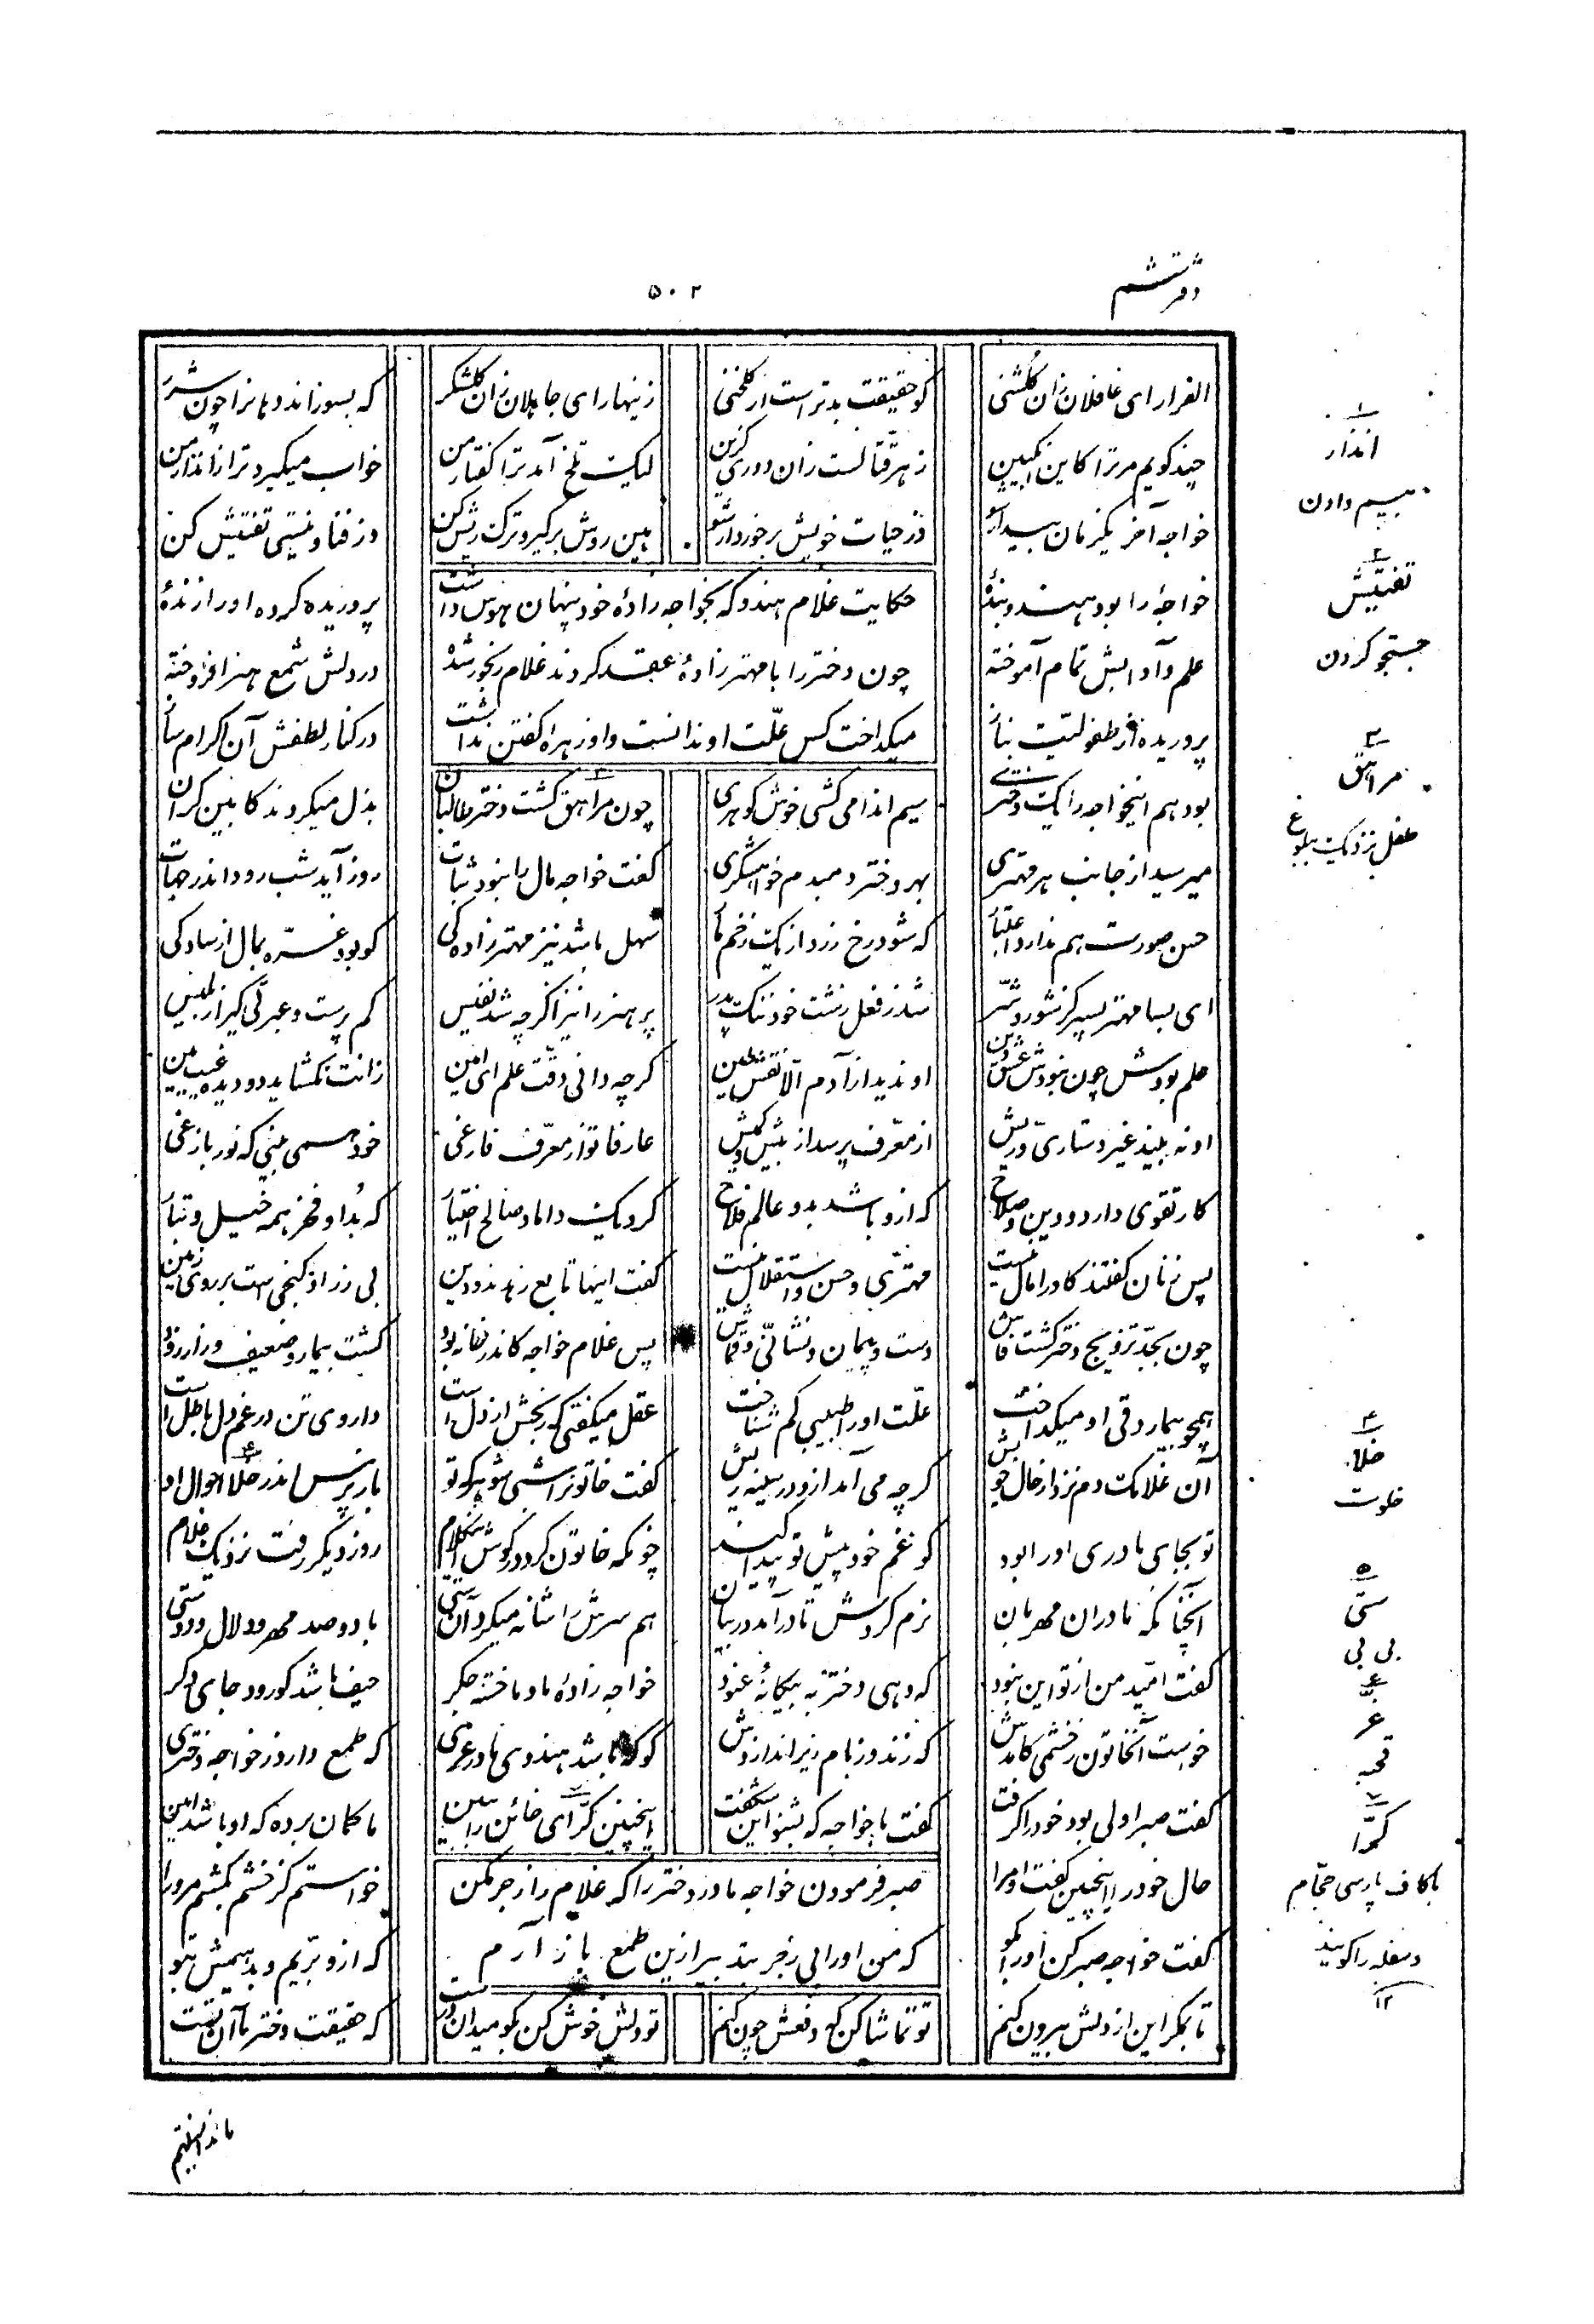 دفتر ششم
۵۰۲
الفرار ای غافلان زان گلشنی کو حقیقت بدتر است از گلخنی زینهار ای جاهلان زان گلشکر که بسوزاند دهانرا چون شرر
چند گویم مرترا کاین انگبین زهر قتالست زان دوری گزین لیک تلخ آمد ترا گفتار من خواب میگیرد ترا زانذار من
خواجه آخر یکزمان بیدار شو در حیات خویش برخوردار شو هین روش برگیر و ترک ریش کن در فنا و نیستی تفتیش کن
حکایت غلام هندو که بخواجه زادهٔ خود پنهان هوس داشت
چون دختر را با مهتر زادهٔ عقد کردند غلام رنجور شد
میگداخت کس علّت او ندانست و او زهرهٔ گفتن نداشت
خواجهٔ را بود هندو بندهٔ پروریده کرده او را زندهٔ
علم و آدابش تمام آموخته در دلش شمع هنر افروخته
پروریده از طفولیّت بناز در کنار لطفش آن اکرام ساز
بود هم اینخواجه را یک دختری سیم اندامی کشی خوش گوهری چون مراهق گشت دختر طالبان بذل میکردند کابین گران
میرسید از جانب هر مهتری بهر دختر دمبدم خواهشگری گفت خواجه مال را نبود ثبات روز آید شب رود اندر جهات
حسن صورت هم ندارد اعتبار که شود رخ زرد از یک زخم خار سهل باشد نیز مهتر زادگی کو بود غرّه بمال از سادگی
ای بسا مهتر پسر کز شور و شر شد ز فعل زشت خود ننگ پدر پر هنر را نیز اگرچه شد نفیس کم پرست و عبرتی گیر از بلیس
علم بودش چون نبودش عشق دین او ندید از آدم الّا نقش طین گرچه دانی دقّت علم ای امین زانت نگشاید دو دیده غیب بین
او نه بیند غیر دستاری و ریش از معرّف پرسد از بیش و کمیش عارفا تو از معرّف فارغی خود همی بینی که نور بازغی
کار تقوی دارد و دین و صلاح که ازو باشد بدو عالم فلاح کرد یک داماد صالح اختیار که بُد او فخر همه خیل و تبار
پس زنان گفتند کاو را مال نیست مهتری و حسن و استقلال نیست گفت اینها تابع زهدند و دین بی زر او گنجی است بر روی زمین
چون بجدّ تزویج دختر گشت فاش دست و پیمان و نشانی و قماش پس غلام خواجه کاندر خانه بود گشت بیمار و ضعیف و زار زود
همچو بیمار دقی او میگداخت علّت او را طبیبی کم شناخت عقل میگفتی که رنجش از دل است داروی تن در غم دل باطل است
آن غلامک دم نزد از حال خویش گرچه می آمد ازو در سینه ریش گفت خاتونرا شبی شوهر که تو باز پرس اندر خلا احوال او
تو بجای مادری او را بود کو غم خود پیش تو پیدا کند چونکه خاتون کرد در گوش این کلام روز دیگر رفت نزدیک غلام
آنچنانکه مادران مهربان نرم کردش تا در آمد در بیان هم سرش را شانه میکرد آن ستی با دو صد مهر و دلال و دوستی
گفت امّید من از تو این نبود که دهی دختر به بیگانهٔ عنود خواجه زادهٔ ما و ما خسته جگر حیف باشد کو رود جای دگر
خواست آنخاتون ز خشمی کامدش که زند وز بام زیر اندازدش کو که باشد هندوی مادر غری که طمع دارد ز خواجه دختری
گفت صبر اولی بود خود را گرفت گفت با خواجه که بشنو این شگفت اینچنین گرّای خائن را ببین ما گمان برده که او باشد امین
صبر فرمودن خواجه مادر دختر را که غلام را زجر مکن
که من او را بی زجر بتدبیر ازین طمع باز آرم
حال خود را اینچنین گفت او مرا خواستم کز خشم بکشم مرورا
گفت خواجه صبر کن او را بگو که ازو ببرّیم و بدهیمش بتو
تا بمکر این از دلش بیرون کنم تو تماشا کن که دفعش چون کنم تو دلش خوش کن بگو میدان درست که حقیقت دختر ما آن تست
۱
انذار
بیم دادن
۲
تفتیش
جستجو کردن
۳
مراهق
طفل نزدیک ببلوغ
۴
خلا
خلوت
۵
ستی
بی بی
۶
غر
قحبه
۷
گرّا
بکاف پارسی حجّام
و سفله را گویند
۱۲